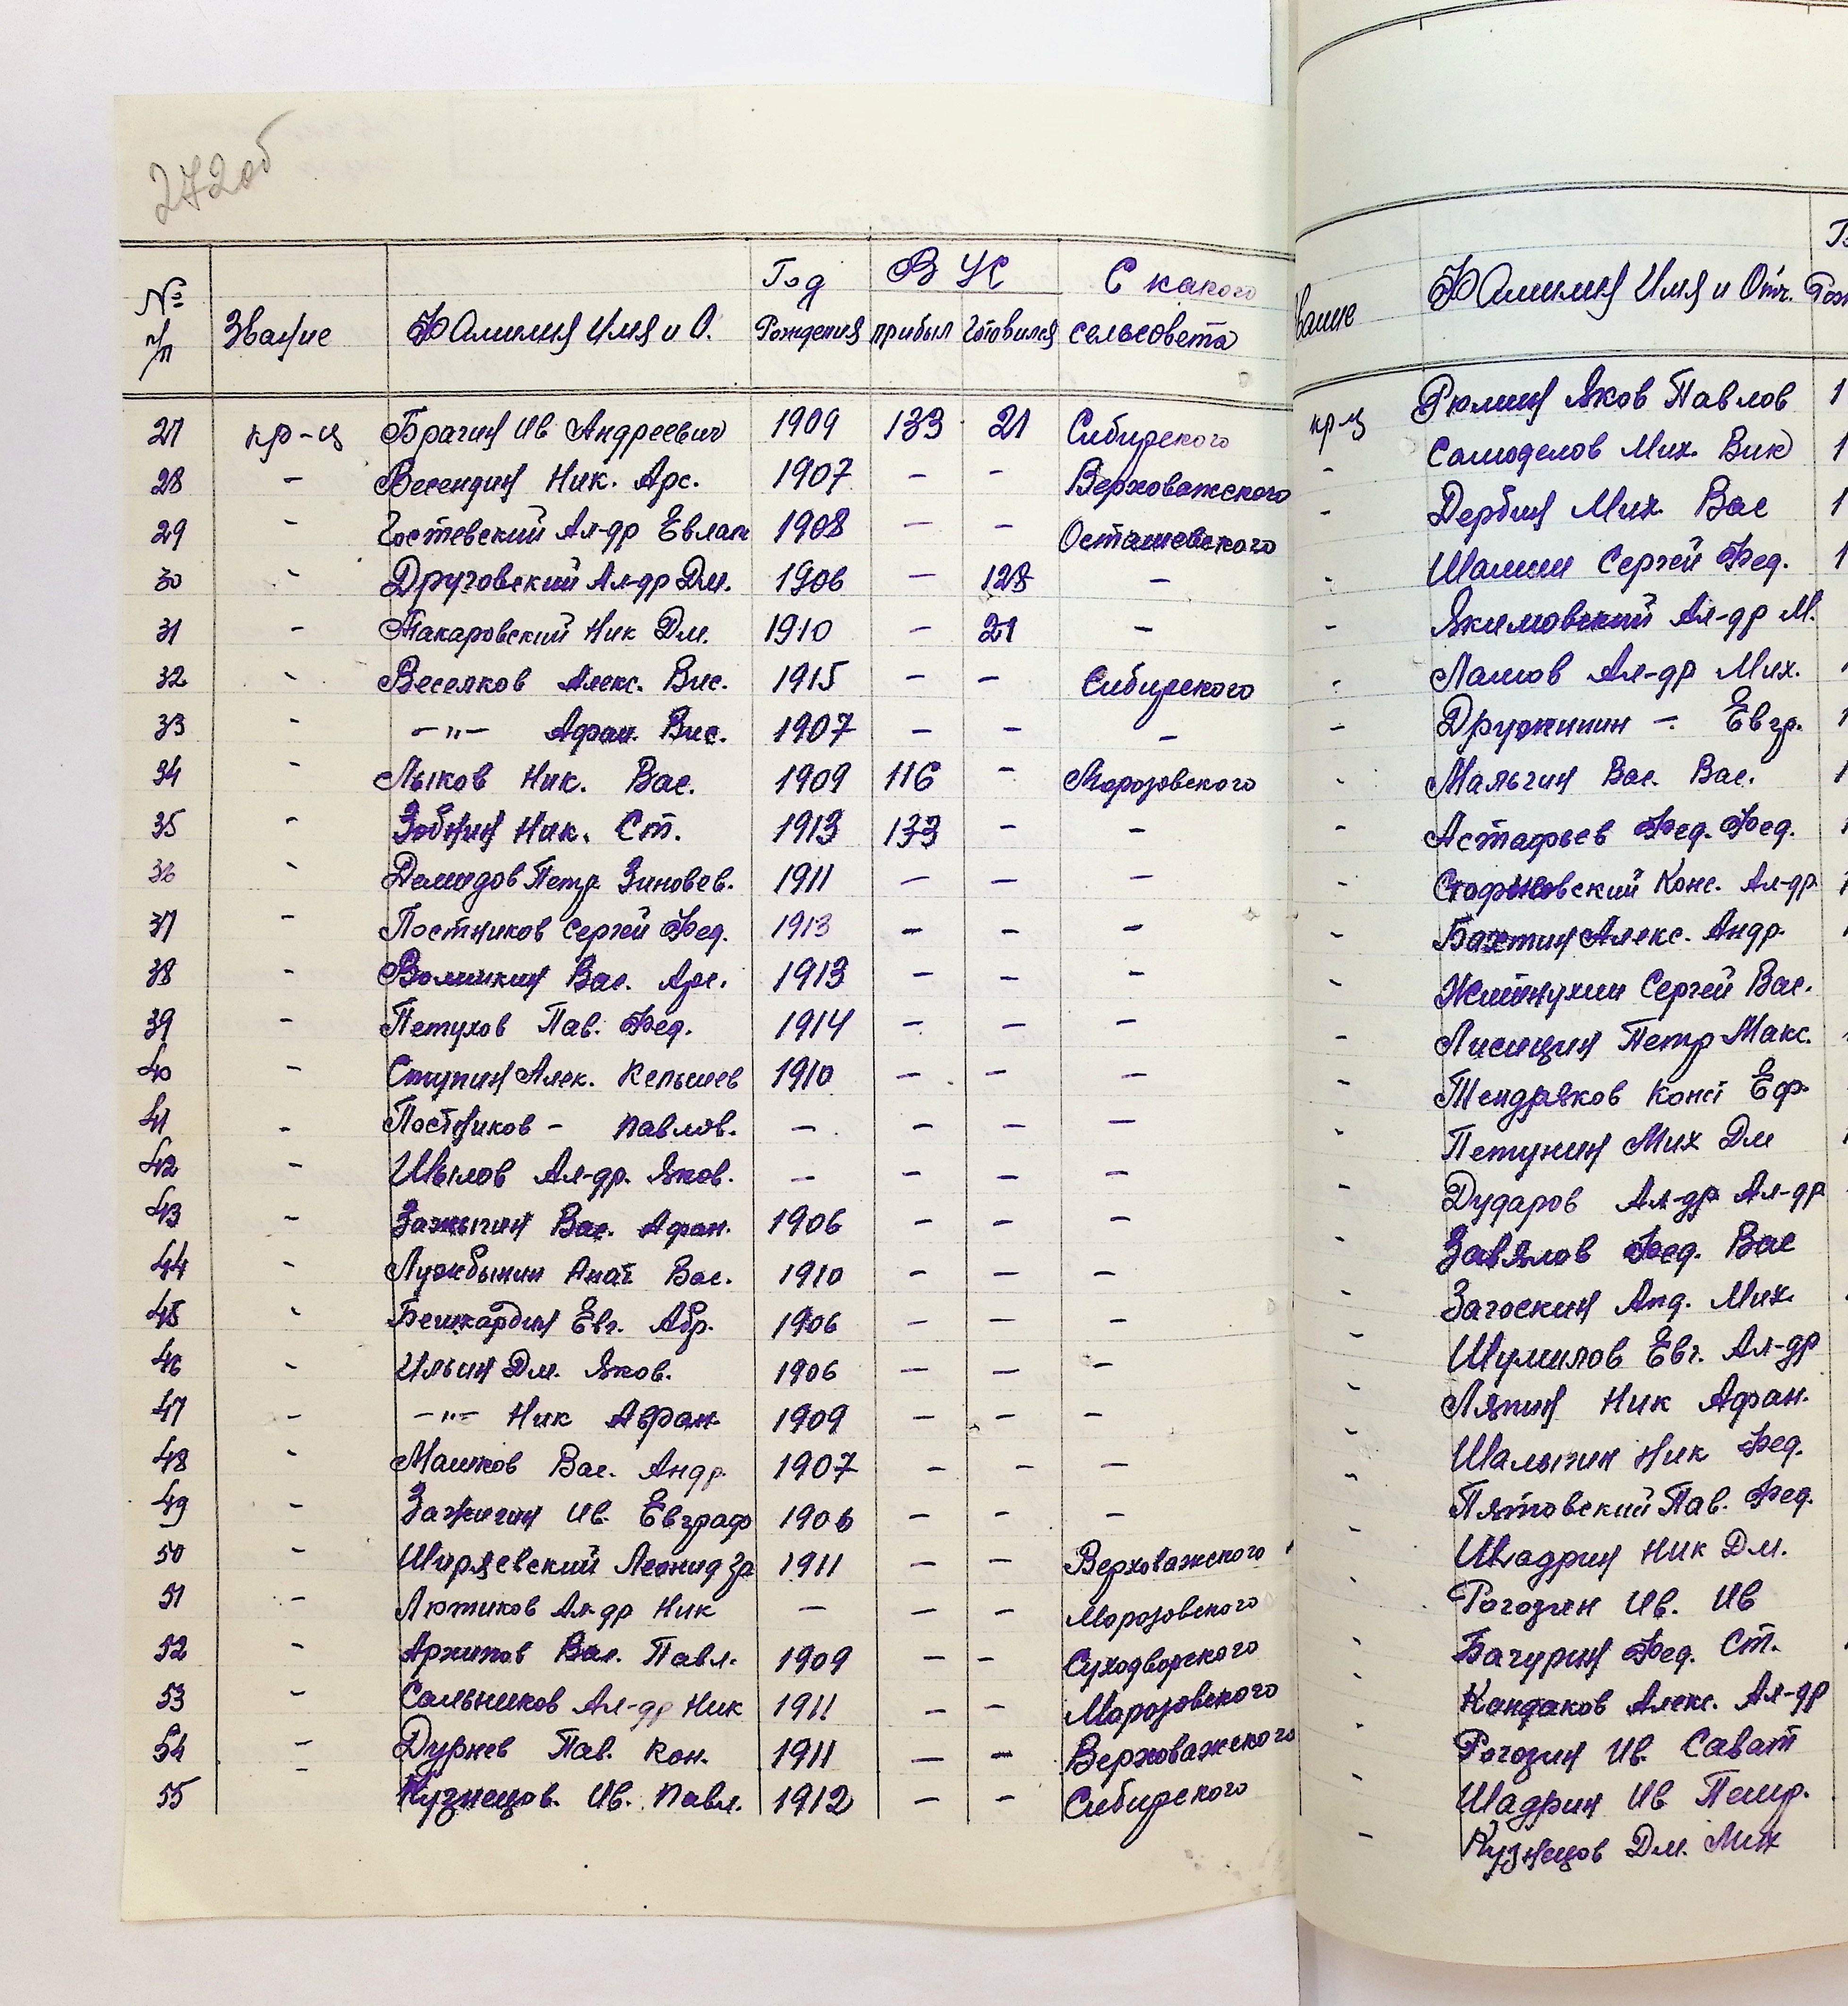 272об
№ п/п Звание Фамилия Имя и О. Год Рождения В УС прибыл Готовился С какого сельсовета
27 кр-ц Брагин Ив Андреевич 1909 133 21 Сибирского
28 - Весендин Ник. Арс. 1907 - - Верховажского
29 - Гостевский Ал-др Евлам 1908 - - Осташевского
30 - Друговский Ал-др Дм. 1906 - 128 -
31 - Макаровский Ник Дм. 1910 - 21 -
32 - Веселков Алекс. Вис. 1915 - - Сибирского
33 - -"- Афан. Вис. 1907 - - -
34 - Лыков Ник. Вас. 1909 116 - Морозовского
35 - Зобнин Ник. Ст. 1913 133 - -
36 - Демидов Петр Зиновев. 1911 - - -
37 - Постников Сергей Фед. 1913 - - -
38 - Волишкин Вас. Арс. 1913 - - -
39 - Петухов Пав. Фед. 1914 - - -
40 - Ступин Алек. 1910 - - -
41 - Постников - Павлов. - - - -
42 - Шылов Ал-др. Яков. - - - -
43 - Зажигин Вас. Афан. 1906 - - -
44 - Лужбынин Анат Вас. 1910 - - -
45 - Бешкардин Евг. Абр. 1906 - - -
46 - Ильин Дм. Яков. 1906 - - -
47 - -"- Ник Афан. 1909 - - -
48 - Машков Вас. Андр 1907 - - -
49 - Зажигин Ив. Евграф 1906 - - -
50 - Ширяевский Леонид Гр 1911 - - Верховажского
51 - Лютиков Ал-др Ник - - - Морозовского
52 - Архипов Вас. Павл. 1909 - - Суходворского
53 - Сальников Ал-др Ник 1911 - - Морозовского
54 - Дурнев Пав. Кон. 1911 - - Верховажского
55 Кузнецов. Ив. Павл. 1912 - - Сибирского
вание Фамилия Имя и Отч.
кр ц Рюмин Яков Павлов
- Самоделов Мих. Вик
- Дербин Мих. Вас
- Шамин Сергей Фед.
- Якимовский Ал-др М.
- Ламов Ал-др Мих.
- Дружинин - Евгр.
- Мальгин Вас. Вас.
- Астафьев Фед. Фед.
- Конс. Ал-др
- Бахтин Алекс. Андр.
- Сергей Вас.
- Лисицин Петр Макс.
- Тендряков Конст Еф.
- Петунин Мих Дм
- Дударов Ал-др Ал-др
- Завялов Фед. Вас
- Загоскин Анд. Мих.
- Шумилов Евг. Ал-др
- Ляпин Ник Афан.
- Шалыгин Ник Фед.
- Пятовский Пав. Фед.
- Шадрин Ник Дм.
- Рогозин Ив. Ив
- Бачурин Фед. Ст.
- Кандаков Алекс. Ал-др
- Рогозин Ив. Сават
- Шадрин Ив Петр.
- Кузнецов Дм. Мих